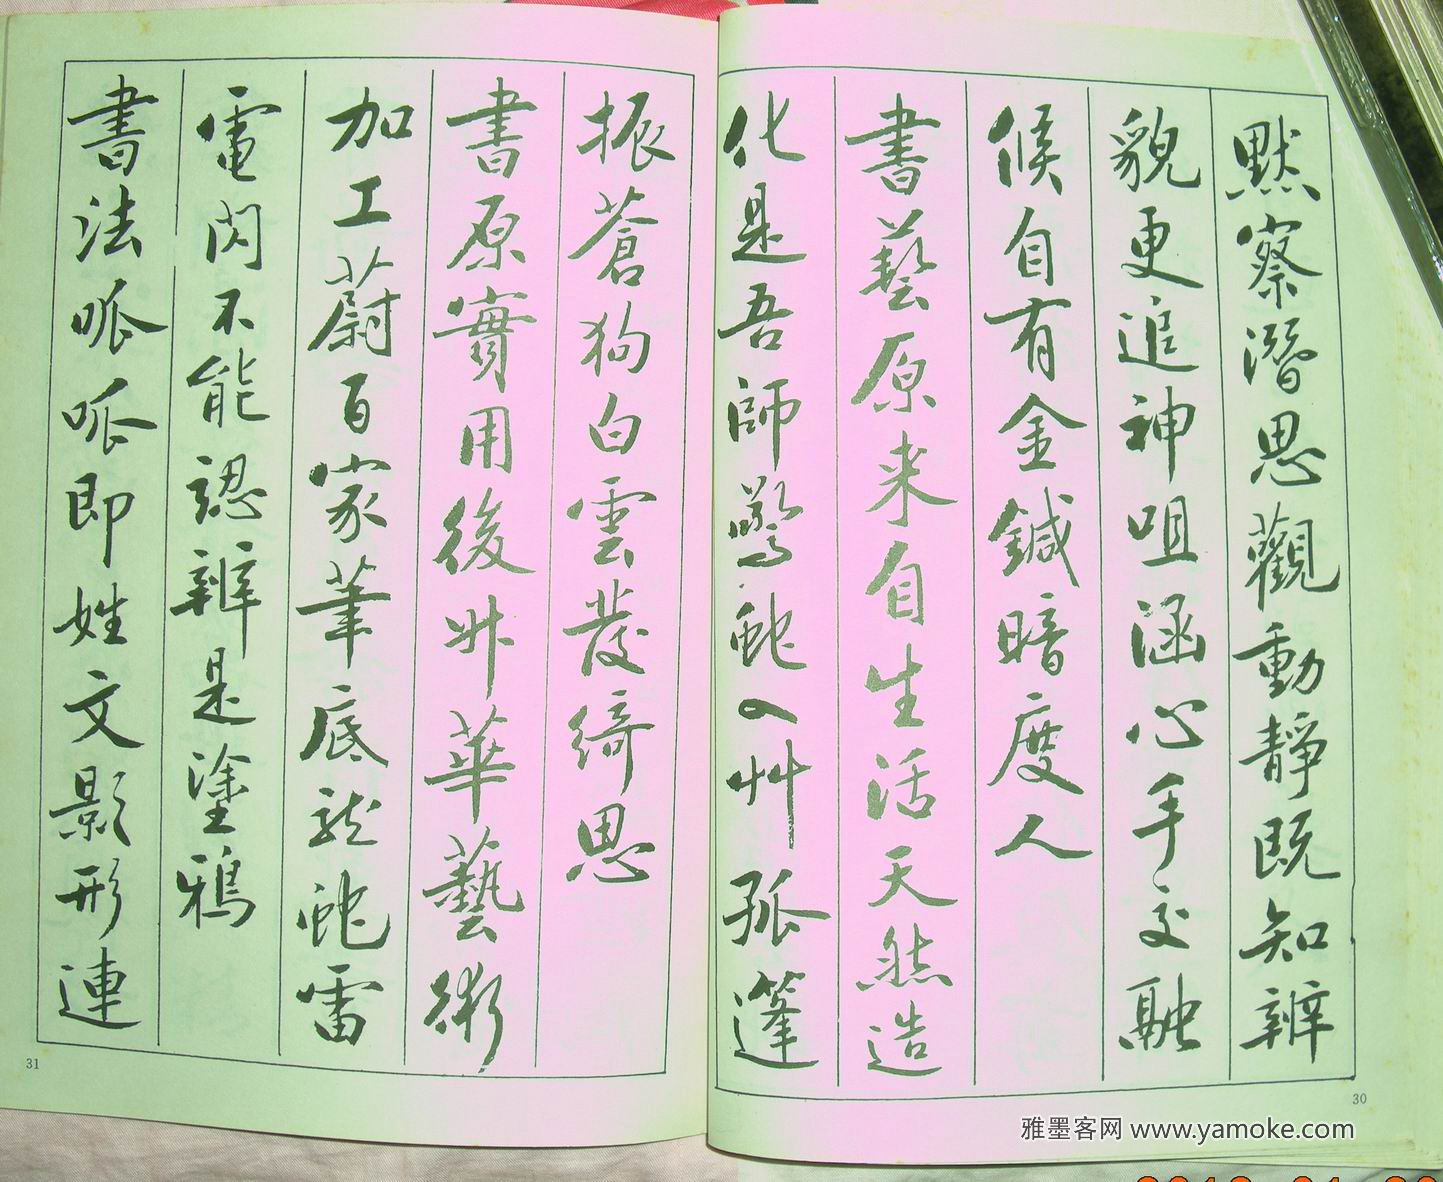 默察潛思觀動靜既知辨
貌更追神咀涵心手交融
候自有金鍼暗度人
書藝原来自生活天然造
化是吾師驚虵入艸孤蓬
30
振蒼狗白雲發綺思
書原實用後升華藝術
加工蔚百家筆底龍虵雷
電閃不能認辨是塗鴉
書法呱呱即姓文影形連
31
雅墨客网 www.yamoke.com